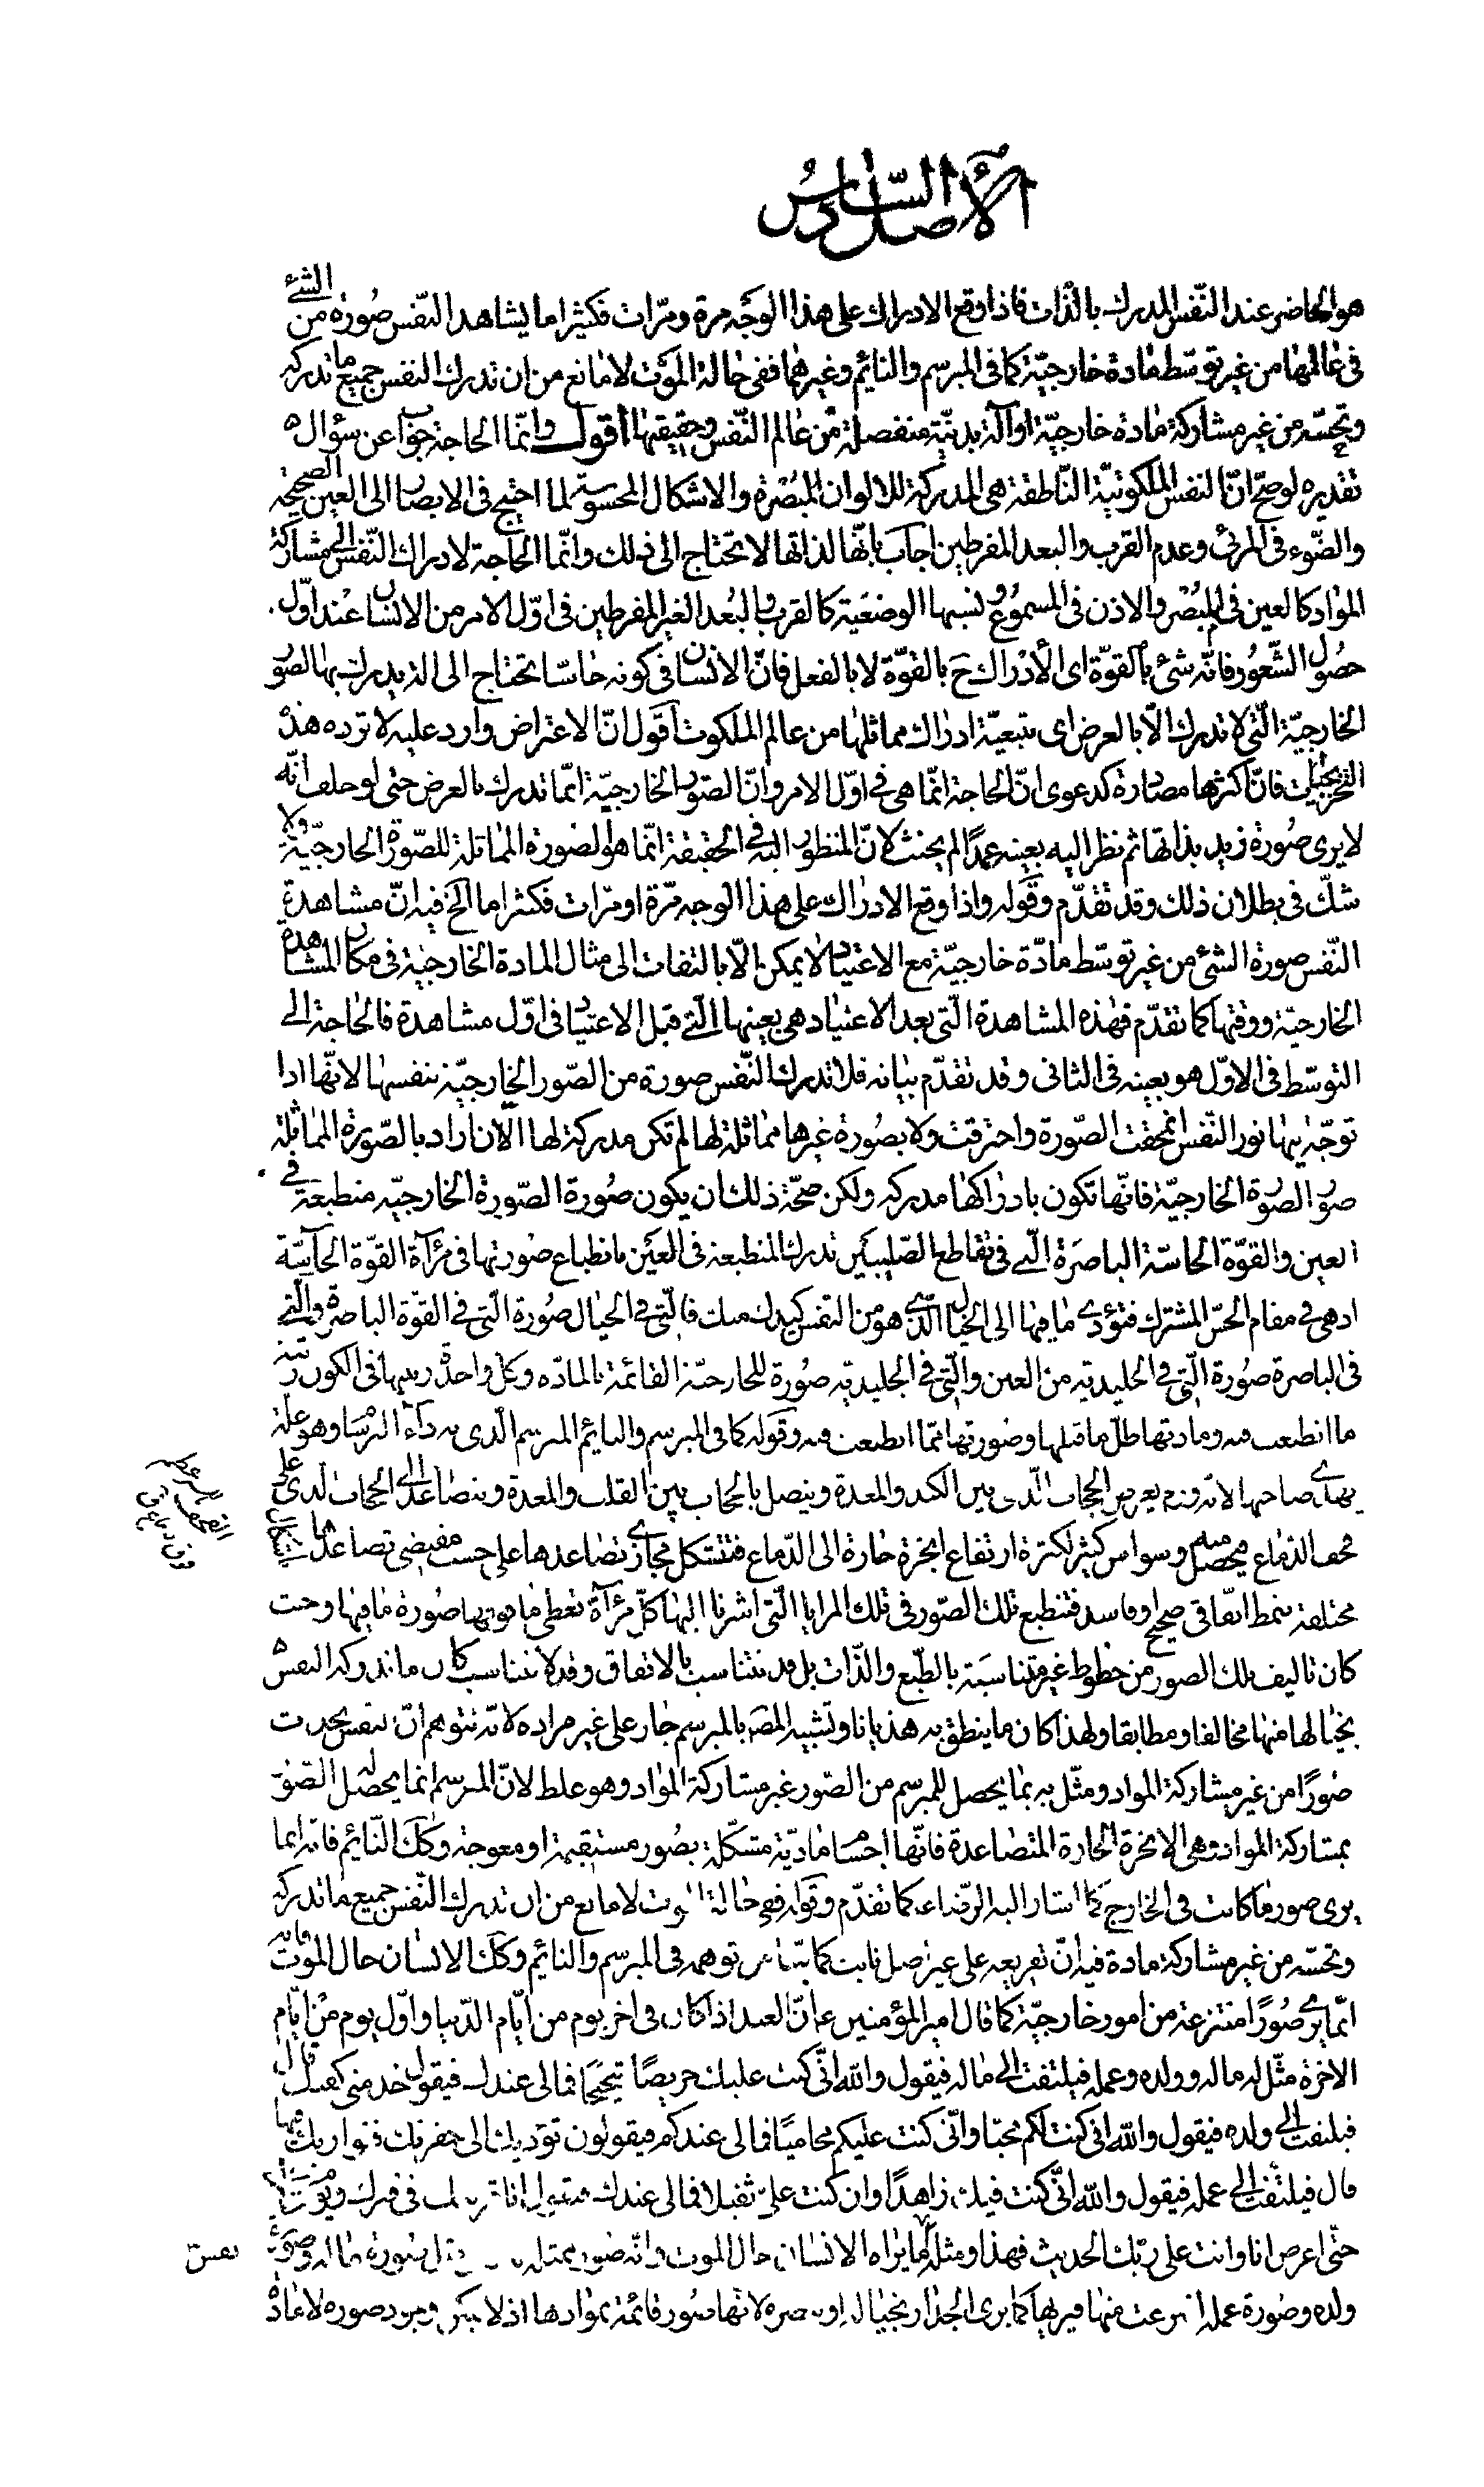 الأصل السّادس
هو الحاضر عند النّفس المدرك بالذّات فاذا وقع الادراك على هذا الوجه مرة ومرّات فكثيرا ما يشاهد النّفس صُورة من الشئ
فى عالمها من غير توسّط مادة خارجيّة كما فى المبرسم والنائم وغيرهما ففى حالة الموت لا مانع من ان تدرك النفس جميع ما تدركه
وتحسّه من غير مشاركة مادة خارجيّة او آلة بدنيّة منفصلة عن عالم النّفس وحقيقتها اقول وانّما الحاجة جواب عن سؤال
تقديره لو صحّ انّ النفس الملكوتيّة النّاطقة هى المدركة للالوان المبُصْرة والاشكال المحسوسة لما احتيج فى الابصار الى العين الصحيحة
والضّوء فى المرئى وعدم القرب والبعد المفرطين اجاب بانّها لذاتها لا تحتاج الى ذلك وانّما الحاجة لادراك النّفس الى مشاركة
المواد كالعين فى المبُصْر والاذن فى المسموع ونسبها الوضعية كالقرب والبُعد الغير المفرطين فى اوّل الامر من الانسان عند اوّل
حصُول الشّعُور فانّه شئ بالقوّة اى الأدراك ح بالقوّة لا بالفعل فانّ الانسان فى كونه حاسّا يحتاج الى الة يدرك بها الصّور
الخارجيّة الّتى لا تدرك الّا بالعرض اى بتبعيّة ادراك مماثلها من عالم الملكوت اقول انّ الاعتراض وارد عليه لا ترده هذه
فانّ اكثرها مصادرة كدعوى انّ الحاجة انّما هى فى اوّل الامر وانّ الصّور الخارجيّة انّما تدرك بالعرض حتى لو حلف انّه
لا يرى صُورة زيد بذاتها ثم نظر اليه بعينه عمدًا لم يحنث لانّ المنظور اليه فى الحقيقة انّما هو الصورة المماثلة للصّورة الخارجيّة ولا
شكّ فى بطلان ذلك وقد تقدّم وقوله واذا وقع الادراك على هذا الوجه مرّة او مرّات فكثيرا ما الخ فيه انّ مشاهدة
النّفس صورة الشئ من غير توسّط مادّة خارجيّة مع الاعتياد لا يمكن الّا بالتفات الى مثال المادة الخارجيّة فى مكان المشاهدة
الخارجيّة ووقتها كما تقدّم فهذه المشاهدة الّتى بعد الاعتياد هى بعينها الّتى قبل الاعتياد فى اوّل مشاهدة فالحاجة الى
التوسّط فى الاوّل هو بعينه فى الثانى وقد تقدّم بيانه فلا تدرك النّفس صورة من الصّور الخارجيّة بنفسها لانّها اذا
توجّه اليها نور النّفس انمحقت الصّورة واحترقت ولا بصُورة غيرها مماثلة لها لم تكن مدركة لها الّا ان اراد بالصّورة المماثلة
صور الصّورة الخارجيّة فانّها تكون بادراكها مدركه ولكن صحّة ذلك ان يكون صُورة الصّورة الخارجيّه منطبعة فى
العين والقوّة الحاسّة الباصَرة الّتى فى تقاطع الصّليبيّن تدرك المنطبعة فى العين بانطباع صورتها فى مرآة القوّة الحاسّة
اذ هى فى مقام الحسّ المشترك فتؤدى ما فيها الى الخيال الذى هو من النفس فالّتى فى الخيال صُورة الّتى فى القوّة الباصرة والّتى
فى الباصرة صُورة الّتى فى الجليديه من العين والّتى فى الجليديه صُورة للخارجيّة القائمة بالمادّه وكلّ واحدة رتبتها فى الكون
ما انطبعت فيه ومادتها ظلّ ما قبلها وصورتها ممّا انطبعت فيه وقوله كما فى المبرسم والنايم المبرسم الّذى به داء البرسام وهو علّة
يهذى صاحبها لانّه ورم يعرض للحجاب الّذى بين الكبد والمعدة ويتصل بالحجاب بين القلب والمعدة ويتصاعد الى الحجاب الّذى على
قحف الدّماغ فيحصل منه وسواس كثير لكثرة ارتفاع ابخرة حارة الى الدّماغ فتتشكل مجارى تصاعدها على حسب مقتضى تصاعدها باشكال
مختلفة بنمط اتفاقى صحيح او فاسد فتنطبع تلك الصّور فى تلك المرايا الّتى اشرنا اليها كلّ مرءآة تعطى ما فوقها صُورة ما فيها وحيث
كان تاليف تلك الصور من خطوط غير متناسبَة بالطّبع والذّات بل قد تتناسب بالاتفاق وقد لا تتناسب كان ما تدركه النفس
بخيالها منها مخالفا ومطابقا ولهذا كان ما ينطق به هذيانا وتشبيه المصّ بالمبرسم جار على غير مراده لانّه تتوهم انّ النفس يحدث
صُورًا من غير مشاركة المواد ومثّل به بما يحصل للمبرسم من الصّور غير مشاركة المواد وهو غلط لانّ المبرسم انما يحصل له الصّور
بمشاركة المواد وهى الابخرة الحارة المتصاعدة فانّها اجسام مادّية متشكّلة بصُور مستقيمة او معوجة وكك النّايم فانه انما
يرى صور ما كانت فى الخارج كما اشار اليه الرّضاء كما تقدّم وقوله ففى حالة الموت لا مانع من ان تدرك النّفس جميع ما تدركه
وتحسّه من غير مشاركة مادة فيه انّ تفريعه على غير اصل ثابت كما بيّنا من توهمه فى المبرسم والنائيم وكك الانسان حال الموت فانه
انّما يرى صُورًا منتزعة من امور خارجيّة كما قال امير المؤمنين ع انّ العبد اذا كان فى اخر يوم من ايّام الدّنيا واوّل يوم من ايّام
الاخرة مثّل له ماله وولده وعمله فيلتفت الى ماله فيقول والله انّى كنت عليك حريصًا شحيحًا فمالى عندك فيقول خذ منى كفنك قال
فيلتفت الى ولده فيقول والله انى كنت لكم محبّا وانّى كنت عليكم محاميًا فمالى عندكم فيقولون نؤديك الى حفرتك فنواريك فيها
قال فيلتفت الى عمله فيقول والله انّى كنت فيك زاهدًا وان كنت علىّ ثقيلا فمالى عندك فيقول انا قرينك فى قبرك ويوم
حتّى اعرض انا وانت على ربّك الحديث فهذا ومثله ما يراه الانسان حال الموت وانّه صُورة ماله وصورة
ولده وصُورة عمله انتزعت منها فيريها كما يرى الجدار بخياله او بصره لانّها صُور قائمة بموادها اذ لا يمكن وجود صوره لا مادّة